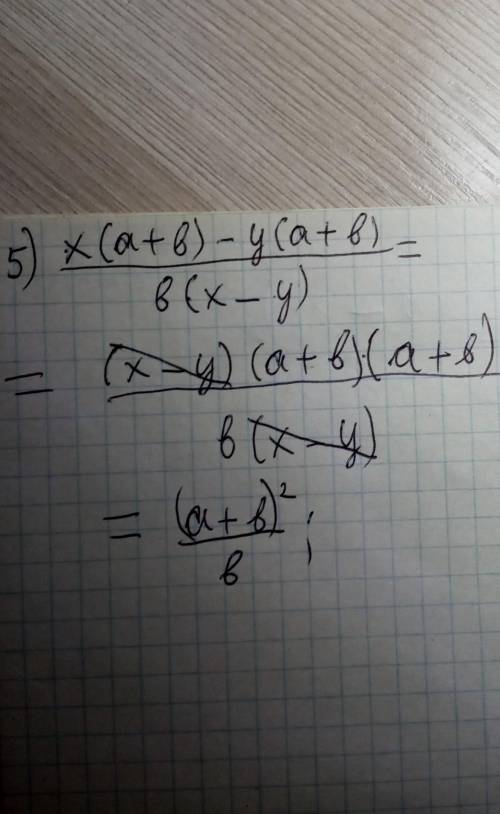 5) x(a+b) - y(a+b) =
b(x-y)
= (x-y)(a+b)·(a+b)
b(x-y)
= (a+b)²;
b